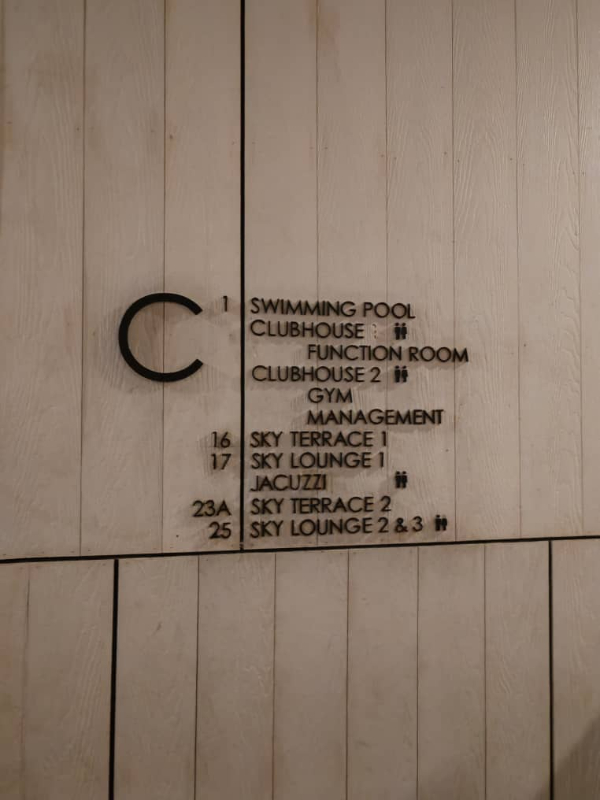 C
1 SWIMMING POOL
CLUBHOUSE
FUNCTION ROOM
CLUBHOUSE 2
GYM
MANAGEMENT
16 SKY TERRACE 1
17 SKY LOUNGE 1
JACUZZI
23A SKY TERRACE 2
25 SKY LOUNGE 2 & 3